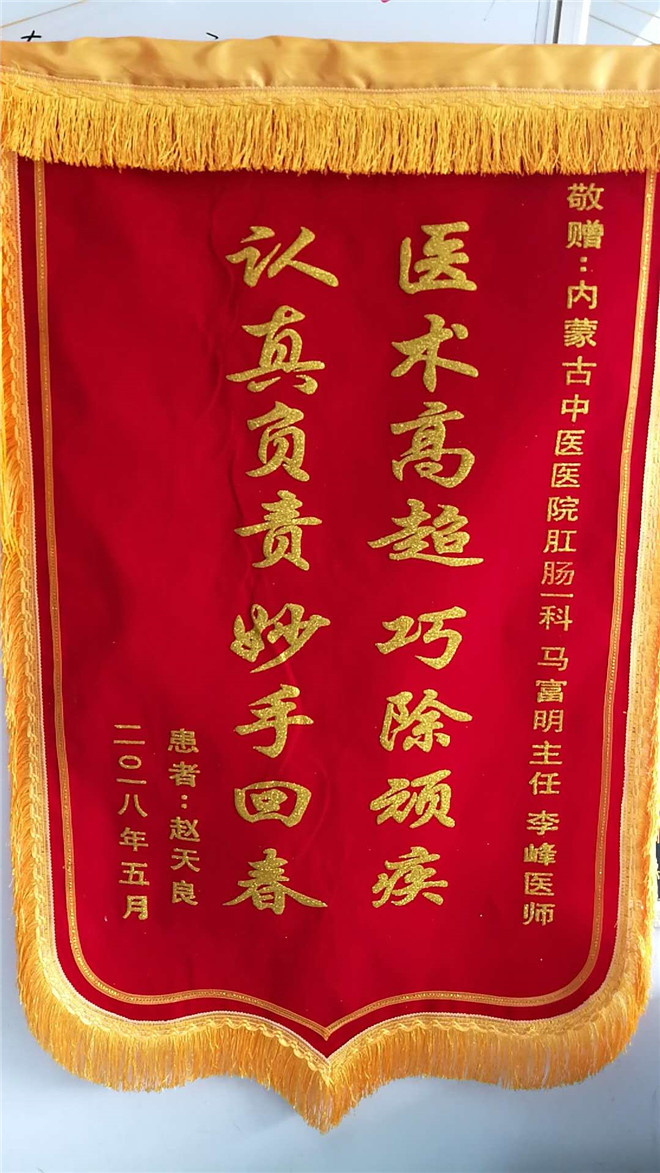 敬赠：内蒙古中医医院肛肠一科 马富明主任 李峰医师
医术高超 巧除顽疾
认真负责 妙手回春
患者：赵天良
二〇一八年五月